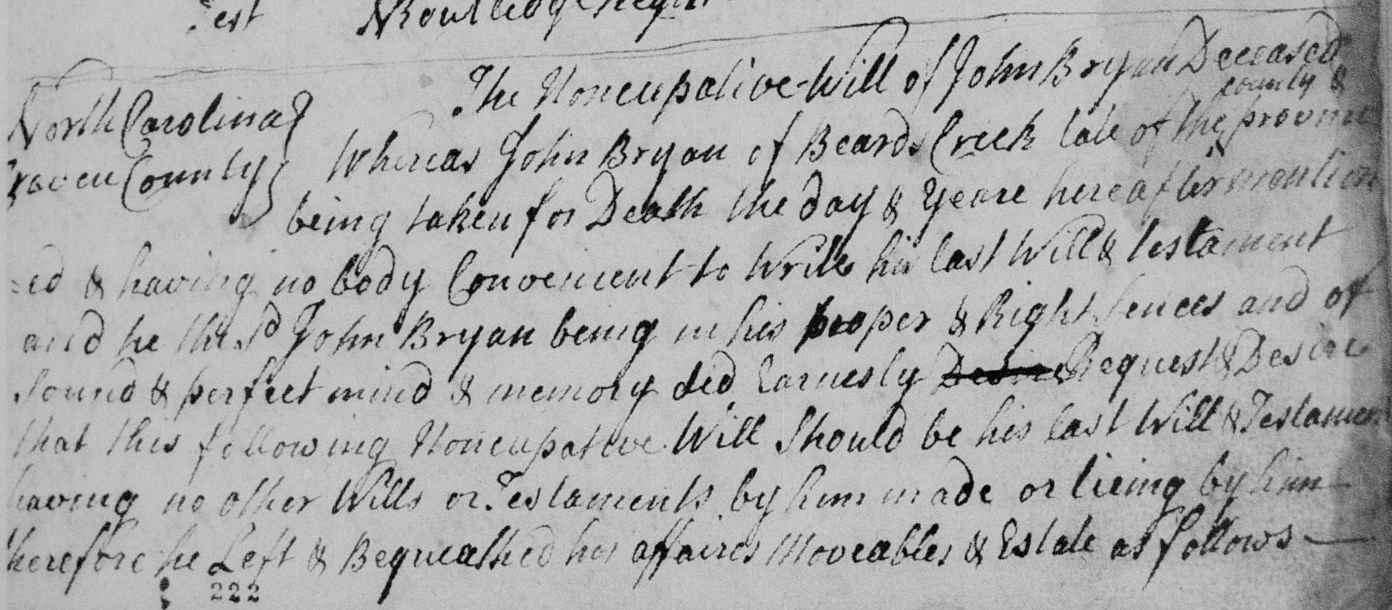 Test
The Noncupative Will of John Bryan Deceased
North Carolina
Craven County
county &
Whereas John Bryan of Beards Creek late of the province
being taken for Death the day & Yeare hereafter mention
=ed & having no body Convenient to Write his last Will & testament
and he the Sd John Bryan being in his proper & Right Sences and of
Sound & perfect mind & memory did Earnesly Desire Request & Desire
that this following Noncupative Will Should be his last Will & Testament
having no other Wills or Testaments by him made or lieing by him
therefore he Left & Bequeathed his affaires Moveables & Estate as follows
222